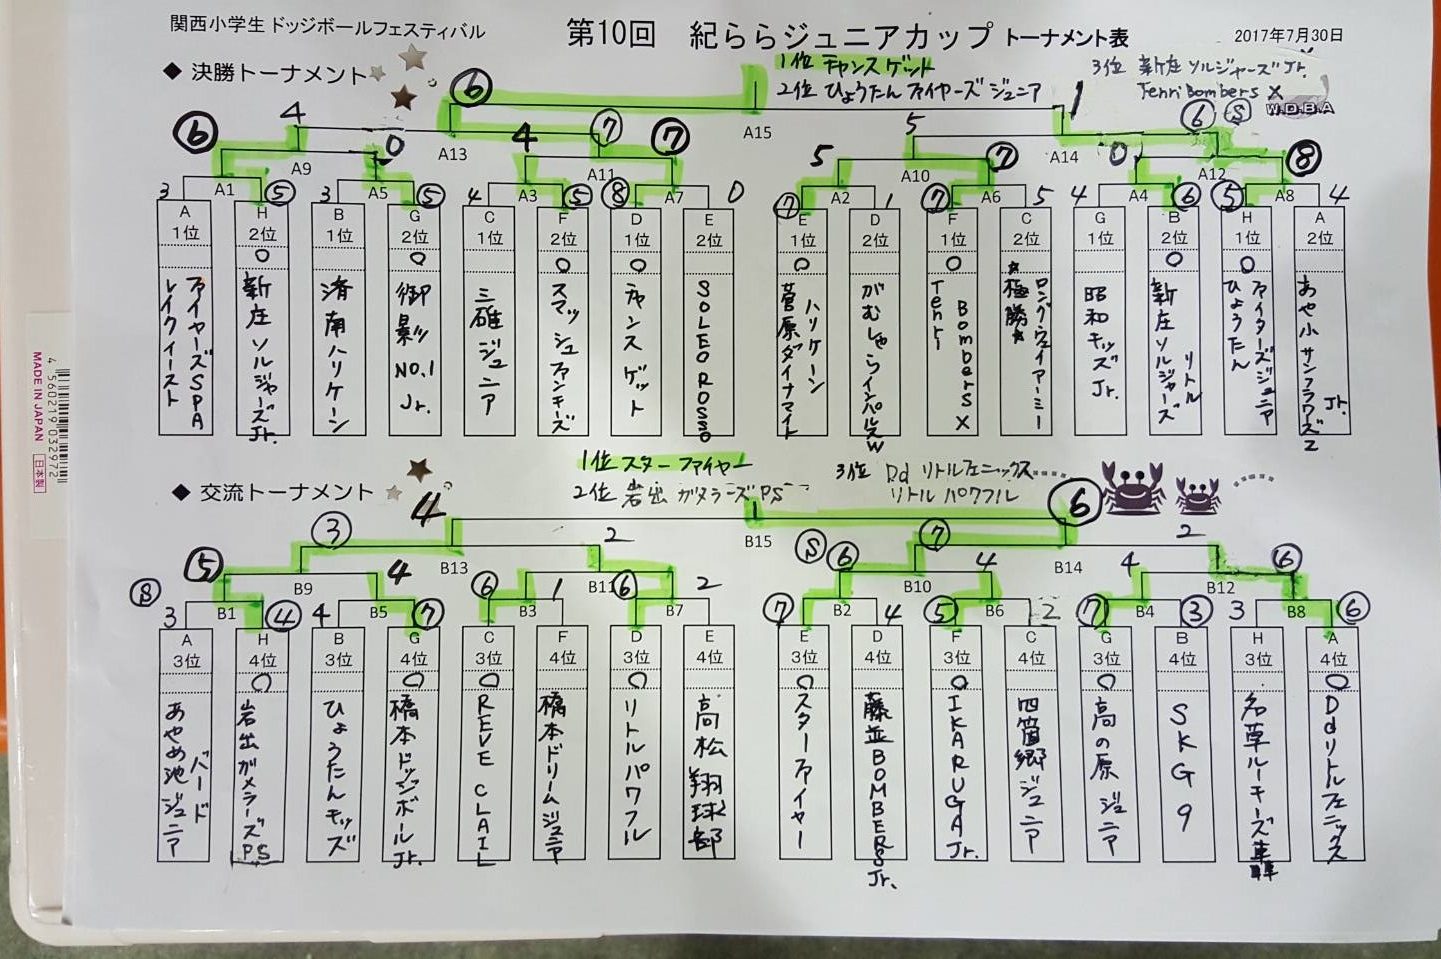 関西小学生ドッジボールフェスティバル
第10回 紀ららジュニアカップ トーナメント表
2017年7月30日
◆ 決勝トーナメント
1位 チャンスゲット
2位 ひょうたんファイヤーズジュニア
3位 新庄ソルジャーズJr.
Tenri Bombers X
W.D.B.A
6 1
A15
6 4 0 4 7 7 5 7 0 6 5 8
A9 A13 A11 A10 A14 A12
A1 A5 A3 A7 A2 A6 A4 A8
3 5 3 5 4 5 8 0 7 1 7 5 4 6 5 4
A H B G C F D E E D F C G B H A
1位 2位 1位 2位 1位 2位 1位 2位 1位 2位 1位 2位 1位 2位 1位 2位
ファイヤーズSPA
レイクイースト
新庄ソルジャーズJr.
済南ハリケーン
御影ッNO.1Jr.
三碓ジュニア
スマッシュファンキーズ
チャンスゲット
SOLEO ROSSO
ハリケーン
菅原ダイナマイト
がむしゃらインパルスW
Bombers X
Tenri
ロングウェイアーミー
☆極勝☆
昭和キッズJr.
リトル
新庄ソルジャーズ
ファイターズジュニア
ひょうたん
Jr.
あや小サンフラワーズZ
◆ 交流トーナメント
1位 スターファイヤー
2位 岩出ガメラーズPS
3位 Dd リトルフェニックス
リトルパワフル
4 1 6
B15
3 2 7 2
B13 B14
8 5 4 6 1 6 2 S 6 4 4 6
B9 B11 B10 B12
B1 B5 B3 B7 B2 B6 B4 B8
3 4 4 7 7 4 5 2 7 3 3 6
A H B G C F D E E D F C G B H A
3位 4位 3位 4位 3位 4位 3位 4位 3位 4位 3位 4位 3位 4位 3位 4位
バード
あやめ池ジュニア
岩出ガメラーズPS
ひょうたんキッズ
橋本ドッジボールJr.
REVE CLAIL
橋本ドリームジュニア
リトルパワフル
高松翔球部
スターファイヤー
藤並BOMBERS Jr.
IKARUGA Jr.
四箇郷ジュニア
高の原ジュニア
SKG9
名草ルーキーズ
Ddリトルフェニックス
4 560219 032972
MADE IN JAPAN 日本製